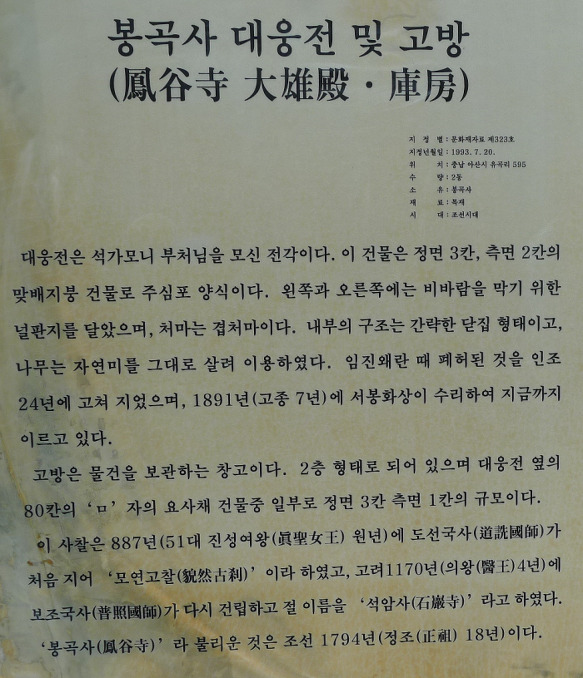 봉곡사 대웅전 및 고방
(鳳谷寺 大雄殿 · 庫房)
지 정 별 : 문화재자료 제323호
지정년월일 : 1993. 7. 20.
위 치 : 충남 아산시 유곡리 595
수 량 : 2동
소 유 : 봉곡사
재 료 : 목재
시 대 : 조선시대
대웅전은 석가모니 부처님을 모신 전각이다. 이 건물은 정면 3칸, 측면 2칸의
맞배지붕 건물로 주심포 양식이다. 왼쪽과 오른쪽에는 비바람을 막기 위한
널판지를 달았으며, 처마는 겹처마이다. 내부의 구조는 간략한 닫집 형태이고,
나무는 자연미를 그대로 살려 이용하였다. 임진왜란 때 폐허된 것을 인조
24년에 고쳐 지었으며, 1891년(고종 7년)에 서봉화상이 수리하여 지금까지
이르고 있다.
고방은 물건을 보관하는 창고이다. 2층 형태로 되어 있으며 대웅전 옆의
80칸의 ‘ㅁ’ 자의 요사채 건물중 일부로 정면 3칸 측면 1칸의 규모이다.
이 사찰은 887년(51대 진성여왕(眞聖女王) 원년)에 도선국사(道詵國師)가
처음 지어 ‘모연고찰(貌然古刹)’ 이라 하였고, 고려1170년(의왕(毉王)4년)에
보조국사(普照國師)가 다시 건립하고 절 이름을 ‘석암사(石巖寺)’ 라고 하였다.
‘봉곡사(鳳谷寺)’ 라 불리운 것은 조선 1794년(정조(正祖) 18년)이다.